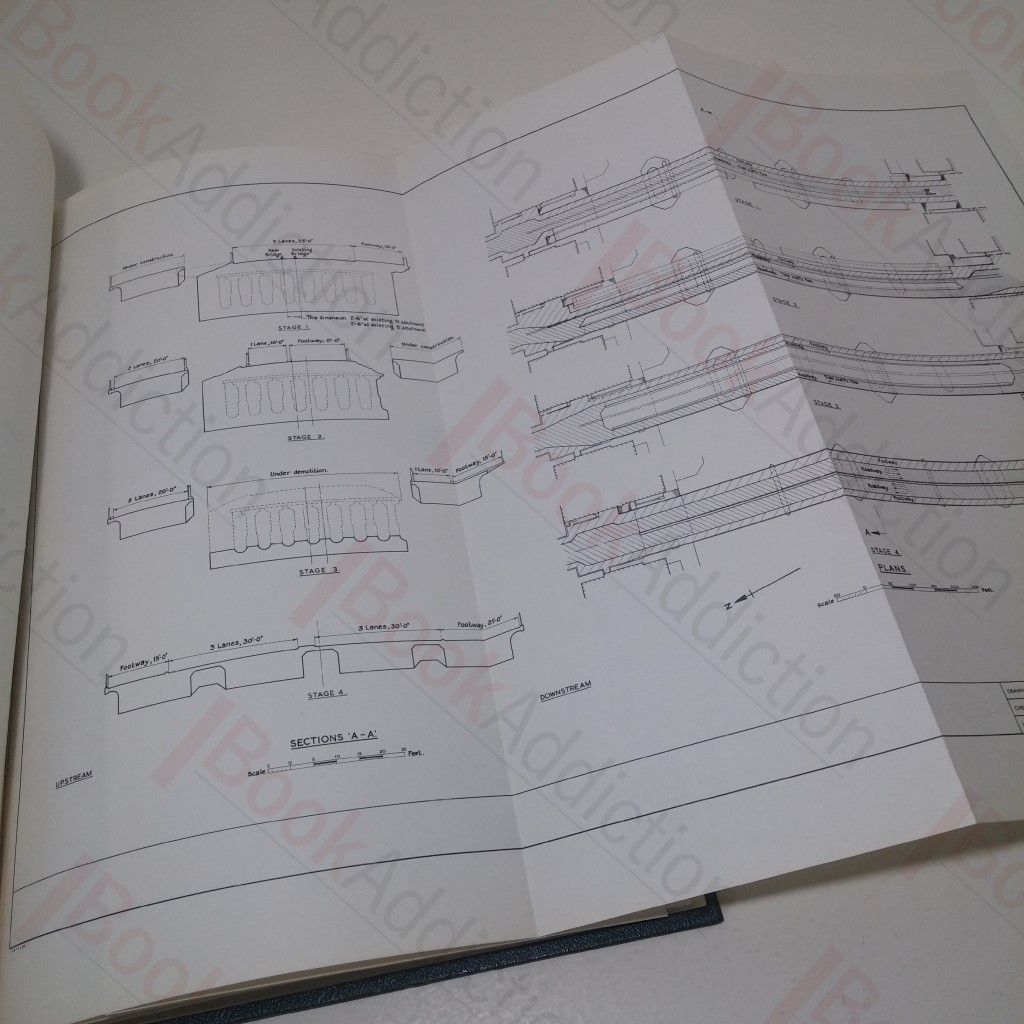 Under construction
3 Lanes, 35'-0"
Footway, 15'-0"
New Bridge
Existing Bridge
This dimension
STAGE 1.
2 Lanes, 20'-0"
1 Lane, 10'-0"
Footway, 15'-0"
Under construction
STAGE 2.
2 Lanes, 20'-0"
Under demolition.
1 Lane, 10'-0"
Footway, 15'-0"
STAGE 3.
Footway, 15'-0"
3 Lanes, 30'-0"
3 Lanes, 30'-0"
Footway, 21'-0"
STAGE 4.
SECTIONS 'A-A'.
Scale 5 0 5 10 15 20 25 Feet.
UPSTREAM
DOWNSTREAM
N
STAGE 1
STAGE 2
STAGE 3.
Footway
Roadway
Roadway
Footway
A
STAGE 4
PLANS.
Scale
Feet.
BookAddiction